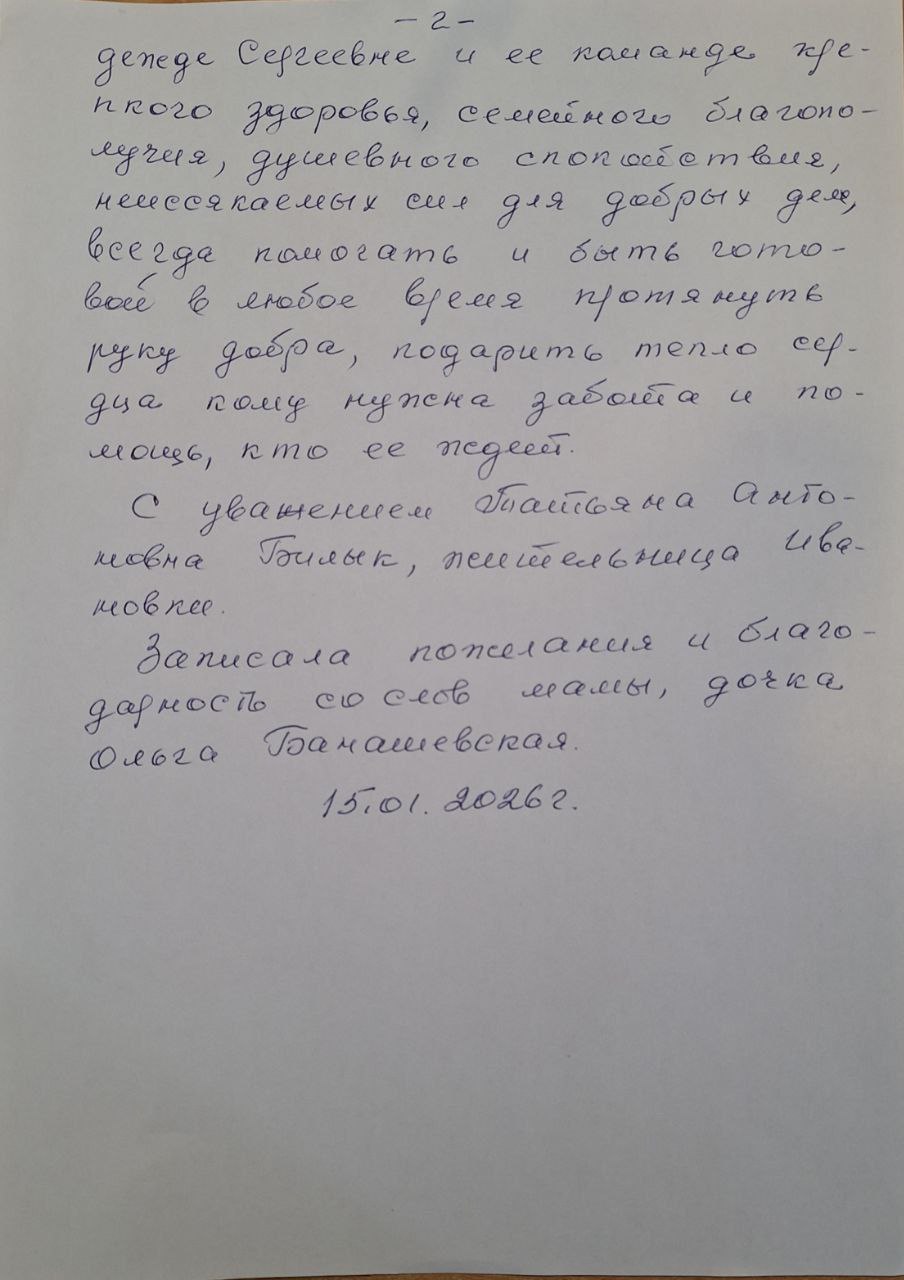 - 2 -
дежде Сергеевне и ее команде кре-
пкого здоровья, семейного благопо-
лучия, душевного спокойствия,
неиссякаемых сил для добрых дел,
всегда помогать и быть гото-
вой в любое время протянуть
руку добра, подарить тепло сер-
дца кому нужна забота и по-
мощь, кто ее ждет.
С уважением Татьяна Анто-
новна Билык, жительница Ива-
новки.
Записала пожелания и благо-
дарность со слов мамы, дочка
Ольга Банашевская.
15.01.2026г.